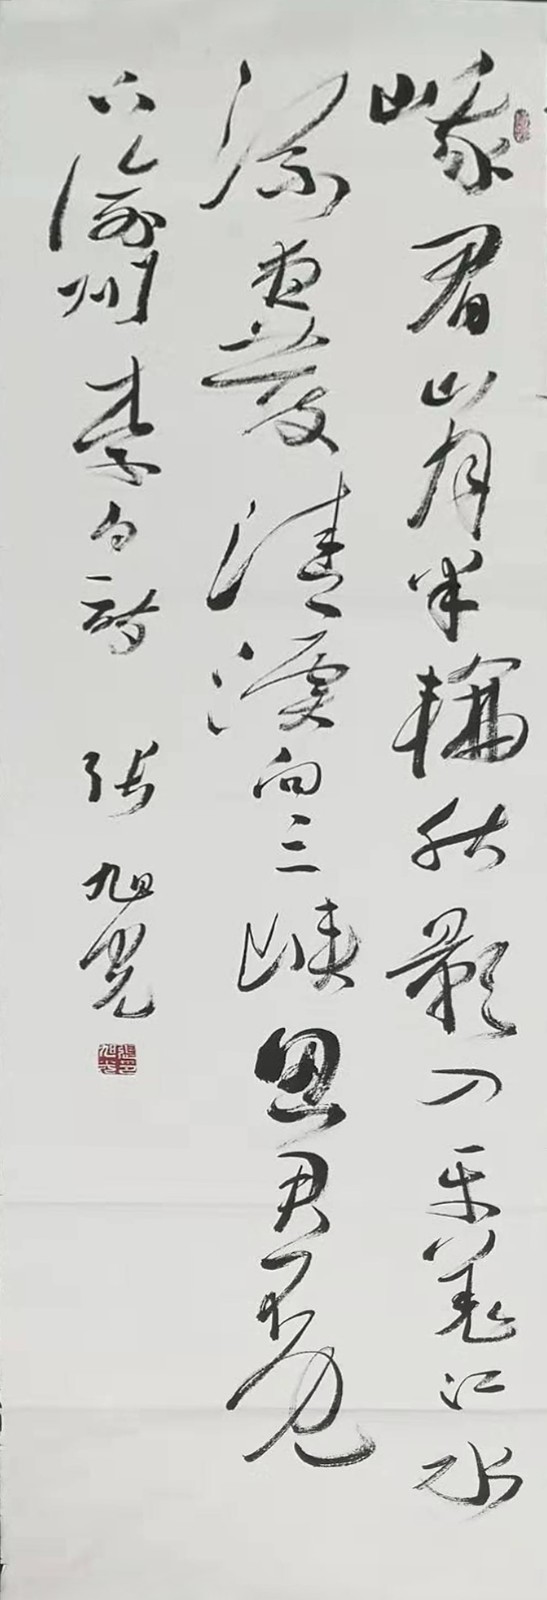 峨眉山月半輪秋影入平羌江水
流夜發清溪向三峽思君不見
下渝州 李白詩 張旭光